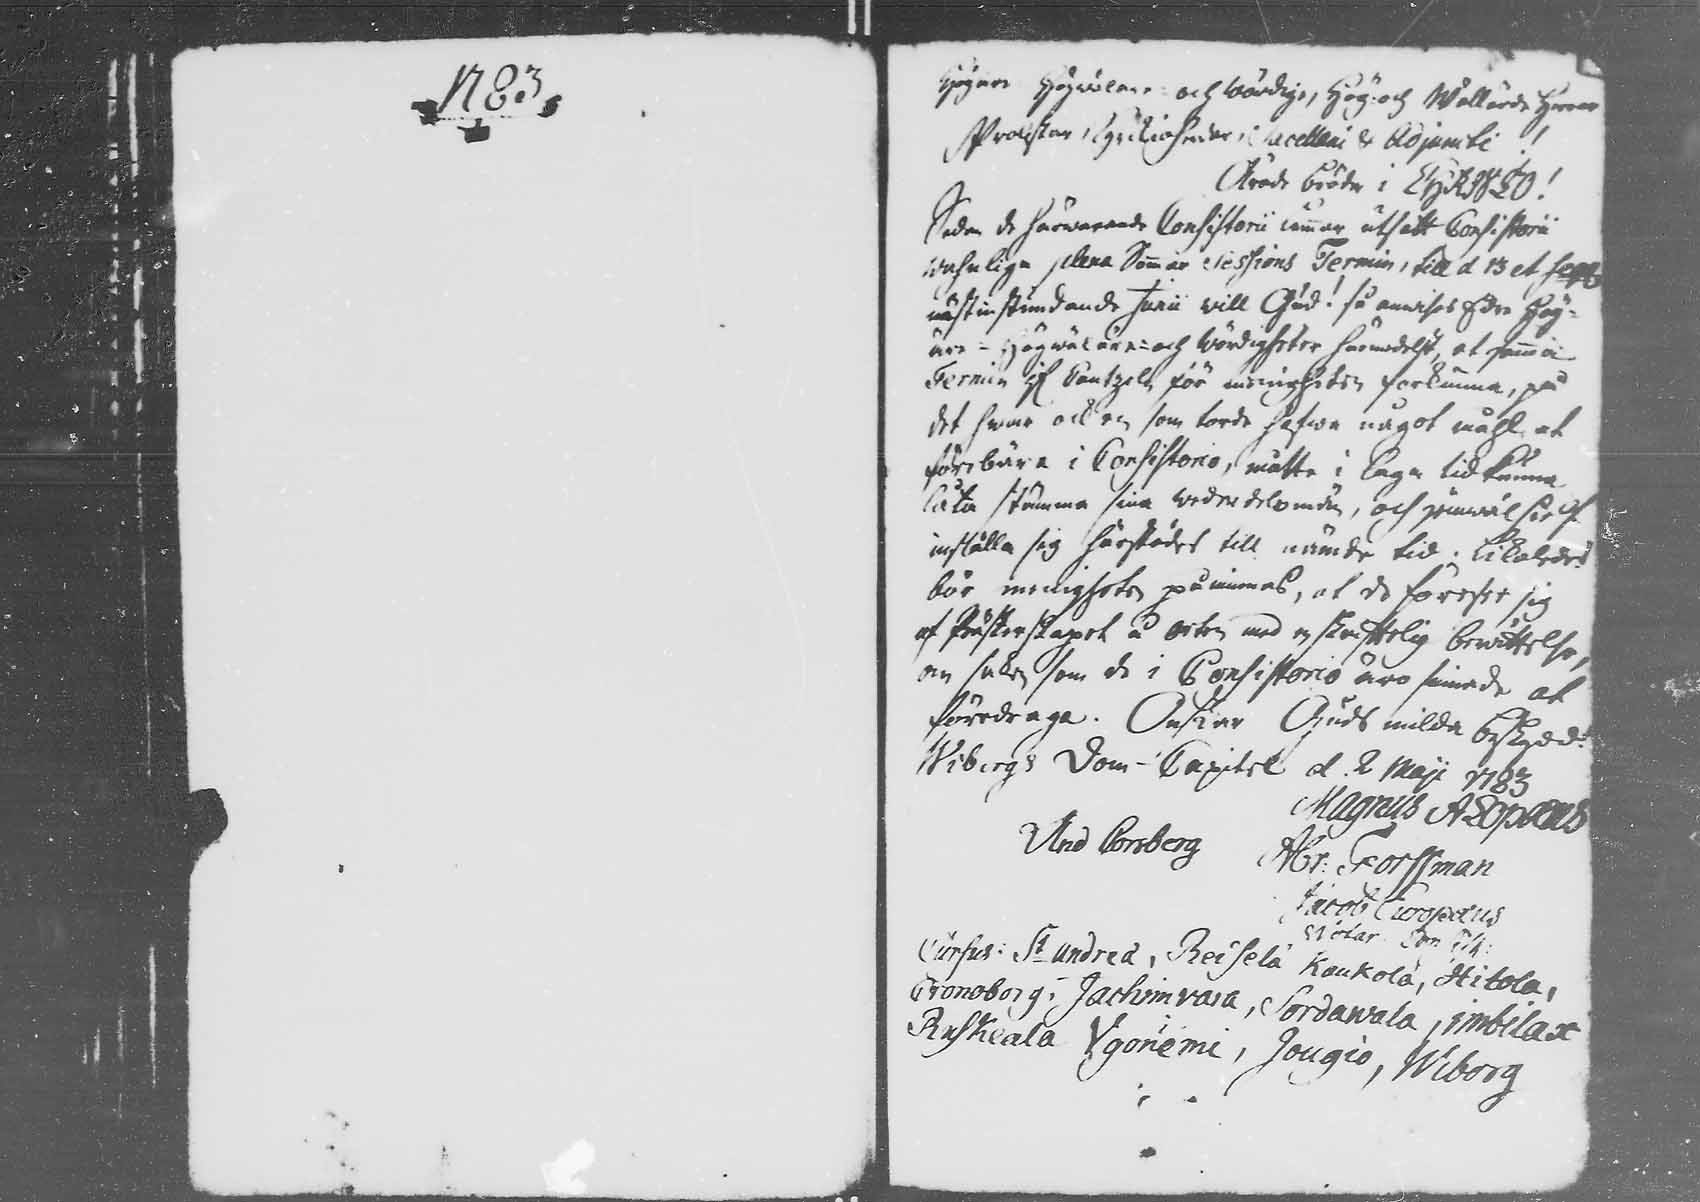 1783
Högäre Högwälärde och Wördige, Hög och Wällärde Herrar
Prostar, Kyrkioherdar, Sacellani & Adjuncti!
Ärade Bröder i CHRISTO!
Sedan de härwarande Consistorii utsatt Consistorii
wahnliga plena Sommar Sessions Termin, till d 13 et seqq
nästinstundande Junii will Gud! så anwises Eder Hög-
äre- Högwäläre- och Wördigheter härmedelst, at samma
Termin af Cantzeln för menigheten förkunna, på
det hwar och en som torde hafwa något mähl at
förebära i Consistorio, måtte i laga tid kunna
låta stämma sina wederdelomän, och jämwäl sielf
inställa sig härstädes till nämde tid; likaledes
bör menigheten påminnas, at de förese sig
af Prästerskapet å orten med en skriftelig berättelse,
om saken som de i Consistorio äro sinnade at
föredraga. Önskar Guds milda beskydd.
Wiborgs Dom-Capitel d. 2 Maji 1783
Magnus Alopæus
And Corsberg Abr: Forssman
Jacob Europæus
Notar. Con
Cursus: St Andreæ, Reiselä Kaukola, Hitola,
Cronoborg, Jachimvara, Sordawala, imbilax
Ruskeala Ygoniemi, Jougio, Wiborg